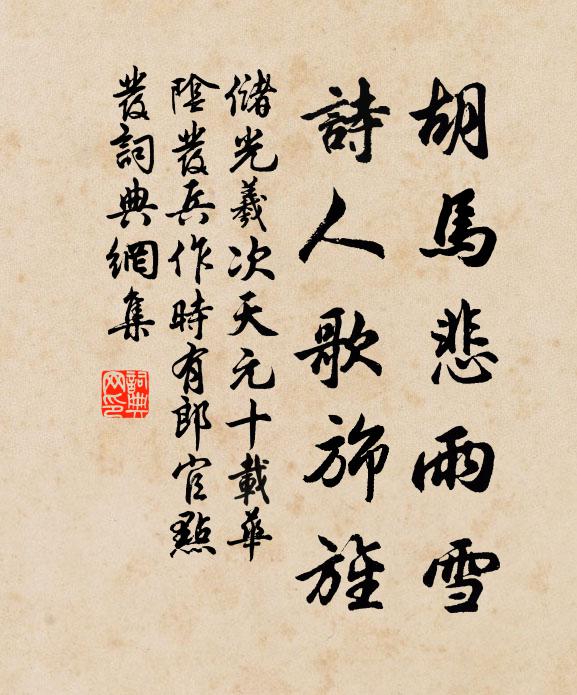 胡馬悲雨雪
詩人歌旆旌
儲光羲次天元十載華
陰發兵作時有郎官點
發詞典網集
詞典
网印